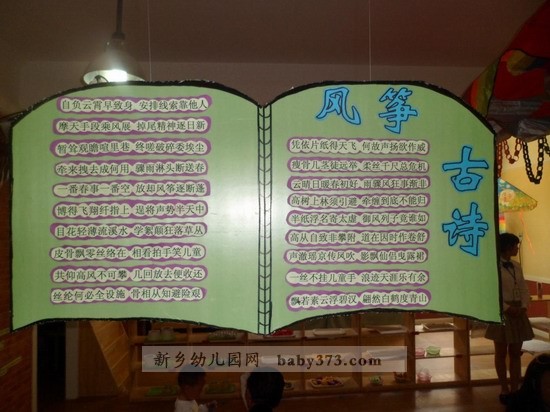 风筝古诗
自负云霄早致身 安排线索靠他人
摩天手段乘风展 掉尾精神逐日新
暂耸观瞻喧里巷 终嗟破碎委埃尘
牵来拽去成何用 骤雨淋头断送春
一番春事一番空 放却风筝逐断蓬
博得飞翔纤指上 现将声势半天中
目花轻薄流溪水 学絮颠狂落草丛
皮骨飘零丝络在 相看拍手笑儿童
共仰高风不可攀 儿回放去便收还
丝纶何必全设施 骨相从知避险艰
凭依片纸得天飞 何故声扬欲作威
瘦骨几茎徒远举 柔丝千尺总危机
云晴日暖春初好 雨骤风狂事渐非
高树上林须引避 牵缠到底不能归
半纸浮名寄太虚 御风列子竟谁如
高从自致非攀附 道在因时作卷舒
声澈瑶京传风吹 影飘仙侣曳露裙
一丝不挂儿童手 浪迹天涯乐有余
飘若素云浮碧汉 翩然白鹤度青山
新乡幼儿园网 baby373.com